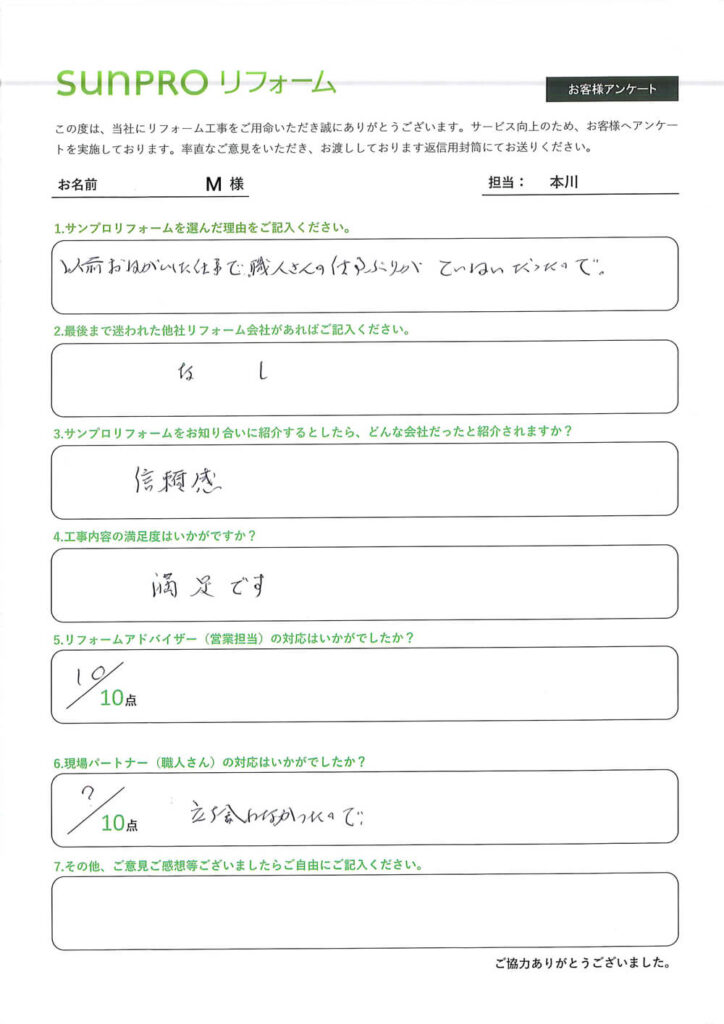 sunPRO リフォーム
お客様アンケート
この度は、当社にリフォーム工事をご用命いただき誠にありがとうございます。サービス向上のため、お客様へアンケー
トを実施しております。率直なご意見をいただき、お渡ししております返信用封筒にてお送りください。
お名前 M 様
担当： 本川
1.サンプロリフォームを選んだ理由をご記入ください。
以前おねがいした仕事で、職人さんの仕事ぶりが ていねいだったので。
2.最後まで迷われた他社リフォーム会社があればご記入ください。
なし
3.サンプロリフォームをお知り合いに紹介するとしたら、どんな会社だったと紹介されますか？
信頼感
4.工事内容の満足度はいかがですか？
満足です
5.リフォームアドバイザー（営業担当）の対応はいかがでしたか？
10/10点
6.現場パートナー（職人さん）の対応はいかがでしたか？
?/10点 立ち会わなかったので
7.その他、ご意見ご感想等ございましたらご自由にご記入ください。
ご協力ありがとうございました。